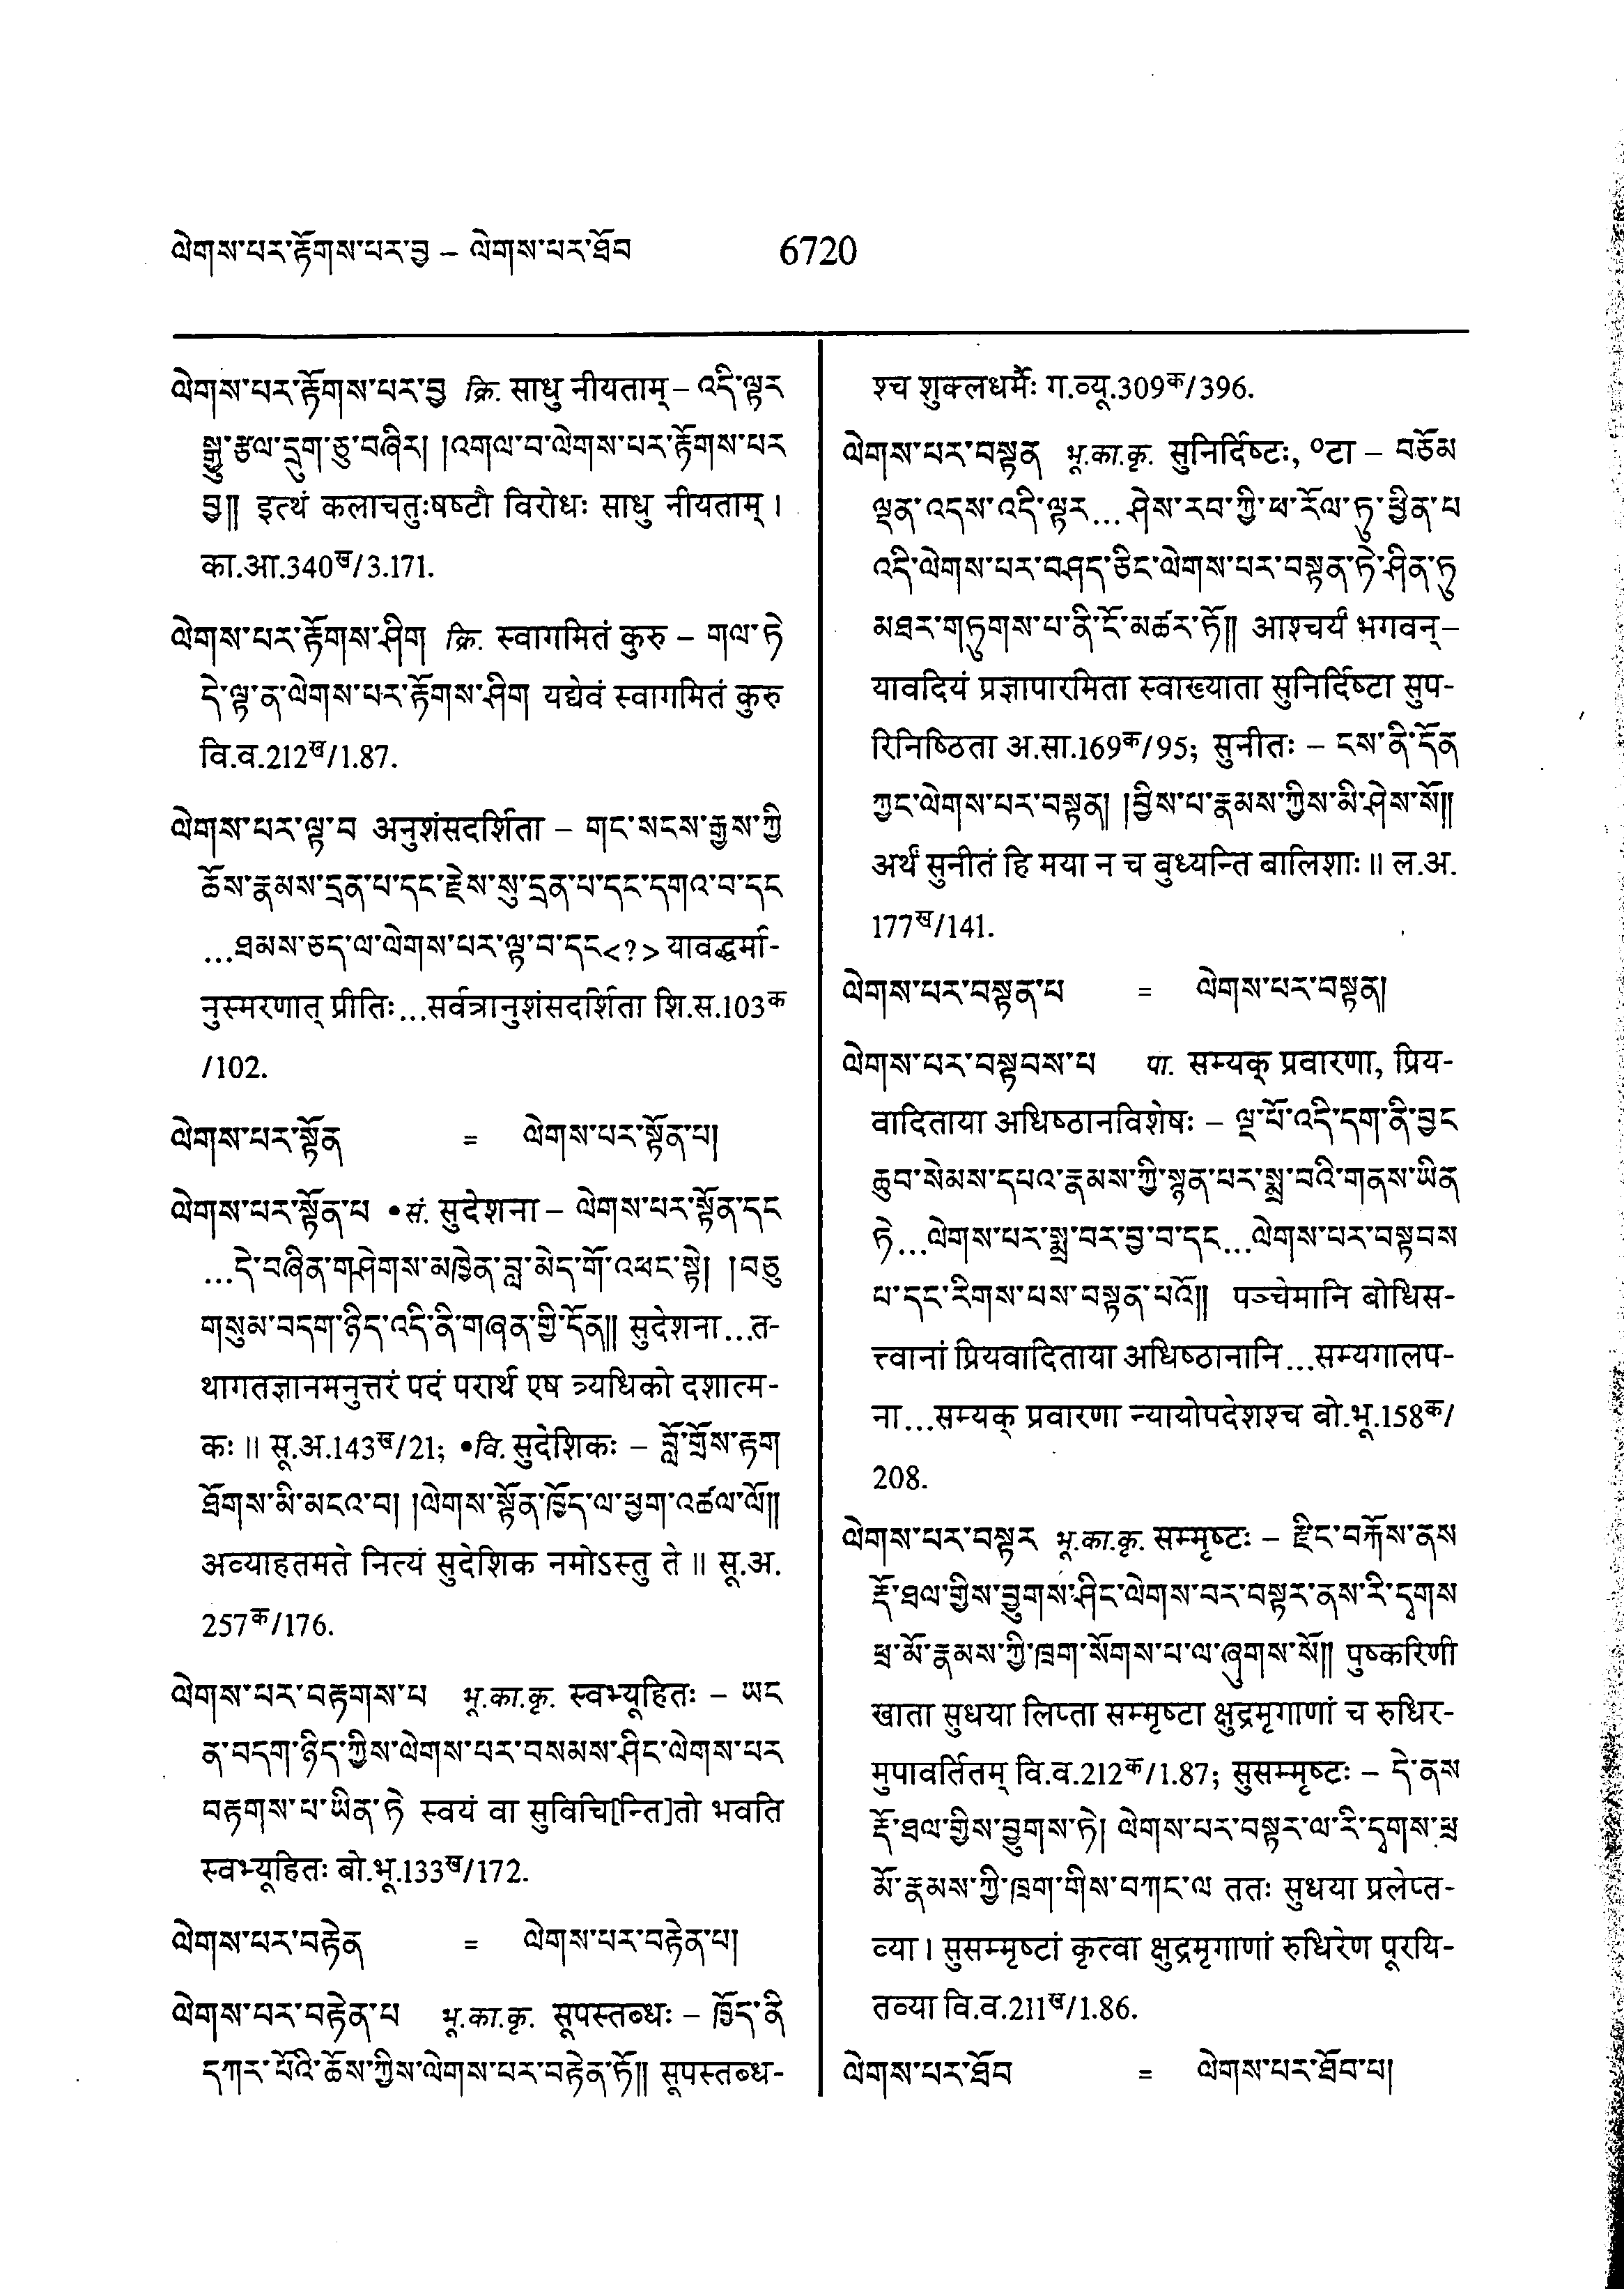 ལེགས་པར་རྟོགས་པར་བྱ – ལེགས་པར་ཐོབ 6720
ལེགས་པར་རྟོགས་པར་བྱ क्रि. साधु नीयताम् – འདི་ལྟར
སྒྱུ་རྩལ་དྲུག་ཅུ་བཞིར། །འགལ་བ་ལེགས་པར་རྟོགས་པར
བྱ༎ इत्थं कलाचतुःषष्टौ विरोधः साधु नीयताम् ।
का.आ.340ख/3.171.
ལེགས་པར་རྟོགས་ཤིག क्रि. स्वागमितं कुरु – གལ་ཏེ
དེ་ལྟ་ན་ལེགས་པར་རྟོགས་ཤིག यद्येवं स्वागमितं कुरु
वि.व.212ख/1.87.
ལེགས་པར་ལྟ་བ अनुशंसदर्शिता – གང་སངས་རྒྱས་ཀྱི
ཆོས་རྣམས་དྲན་པ་དང་རྗེས་སུ་དྲན་པ་དང་དགའ་བ་དང
...ཐམས་ཅད་ལ་ལེགས་པར་ལྟ་བ་དང<?> यावद्धर्मा-
नुस्मरणात् प्रीतिः...सर्वत्रानुशंसदर्शिता शि.स.103क
/102.
ལེགས་པར་སྟོན = ལེགས་པར་སྟོན་པ།
ལེགས་པར་སྟོན་པ •सं. सुदेशना – ལེགས་པར་སྟོན་དང
...དེ་བཞིན་གཤེགས་མཁྱེན་བླ་མེད་གོ་འཕང་སྟེ། །བཅུ
གསུམ་བདག་ཉིད་འདི་ནི་གཞན་གྱི་དོན༎ सुदेशना...त-
थागतज्ञानमनुत्तरं पदं परार्थ एष त्र्यधिको दशात्म-
कः ॥ सू.अ.143ख/21; •वि. सुदेशिकः – བློ་གྲོས་རྟག
ཐོགས་མི་མངའ་བ། །ལེགས་སྟོན་ཁྱོད་ལ་ཕྱག་འཚལ་ལོ༎
अव्याहतमते नित्यं सुदेशिक नमोऽस्तु ते ॥ सू.अ.
257क/176.
ལེགས་པར་བརྟགས་པ भू.का.कृ. स्वभ्यूहितः – ཡང
ན་བདག་ཉིད་ཀྱིས་ལེགས་པར་བསམས་ཤིང་ལེགས་པར
བརྟགས་པ་ཡིན་ཏེ स्वयं वा सुविचि[न्ति]तो भवति
स्वभ्यूहितः बो.भू.133ख/172.
ལེགས་པར་བརྟེན = ལེགས་པར་བརྟེན་པ།
ལེགས་པར་བརྟེན་པ भू.का.कृ. सूपस्तब्धः – ཁྱོད་ནི
དཀར་པོའི་ཆོས་ཀྱིས་ལེགས་པར་བརྟེན་ཏོ༎ सूपस्तब्ध-
श्च शुक्लधर्मैः ग.व्यू.309क/396.
ལེགས་པར་བསྟན भू.का.कृ. सुनिर्दिष्टः, ०टा – བཅོམ
ལྡན་འདས་འདི་ལྟར...ཤེས་རབ་ཀྱི་ཕ་རོལ་ཏུ་ཕྱིན་པ
འདི་ལེགས་པར་བཤད་ཅིང་ལེགས་པར་བསྟན་ཏེ་ཤིན་ཏུ
མཐར་གཏུགས་པ་ནི་ངོ་མཚར་ཏོ༎ आश्चर्यं भगवन्–
यावदियं प्रज्ञापारमिता स्वाख्याता सुनिर्दिष्टा सुप-
रिनिष्ठिता अ.सा.169क/95; सुनीतः – ངས་ནི་དོན
ཀྱང་ལེགས་པར་བསྟན། །བྱིས་པ་རྣམས་ཀྱིས་མི་ཤེས་སོ༎
अर्थं सुनीतं हि मया न च वुध्यन्ति बालिशाः ॥ ल.अ.
177ख/141.
ལེགས་པར་བསྟན་པ = ལེགས་པར་བསྟན།
ལེགས་པར་བསྟབས་པ पा. सम्यक् प्रवारणा, प्रिय-
वादिताया अधिष्ठानविशेषः – ལྔ་པོ་འདི་དག་ནི་བྱང
ཆུབ་སེམས་དཔའ་རྣམས་ཀྱི་སྙན་པར་སྨྲ་བའི་གནས་ཡིན
ཏེ...ལེགས་པར་སྨྲ་བར་བྱ་བ་དང...ལེགས་པར་བསྟབས
པ་དང་རིགས་པས་བསྟན་པའོ༎ पञ्चेमानि बोधिस-
त्त्वानां प्रियवादिताया अधिष्ठानानि...सम्यगालप-
ना...सम्यक् प्रवारणा न्यायोपदेशश्च बो.भू.158क/
208.
ལེགས་པར་བསྟར भू.का.कृ. सम्मृष्टः – རྫིང་བརྐོས་ནས
རྡོ་ཐལ་གྱིས་བྱུགས་ཤིང་ལེགས་བར་བསྟར་ནས་རི་དྭགས
ཕྲ་མོ་རྣམས་ཀྱི་ཁྲག་སོགས་པ་ལ་ཞུགས་སོ༎ पुष्करिणी
खाता सुधया लिप्ता सम्मृष्टा क्षुद्रमृगाणां च रुधिर-
मुपावर्तितम् वि.व.212क/1.87; सुसम्मृष्टः – དེ་ནས
རྡོ་ཐལ་གྱིས་བྱུགས་ཏེ། ལེགས་པར་བསྟར་ལ་རི་དྭགས་ཕྲ
མོ་རྣམས་ཀྱི་ཁྲག་གིས་བཀང་ལ ततः सुधया प्रलेप्त-
व्या । सुसम्मृष्टां कृत्वा क्षुद्रमृगाणां रुधिरेण पूरयि-
तव्या वि.व.211ख/1.86.
ལེགས་པར་ཐོབ = ལེགས་པར་ཐོབ་པ།